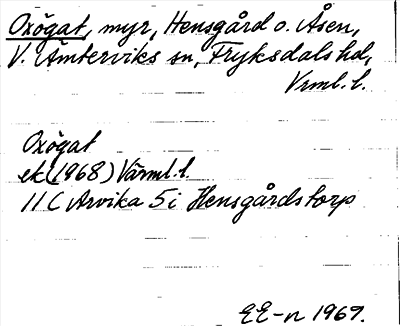 Oxögat, myr, Hensgård o. Åsen,
V. Ämterviks sn, Fryksdals hd,
Vrml. l.
Oxögat
ek (1968) Värml. l.
11 C Arvika 5 i Hensgårdstorp
EE-n 1967.